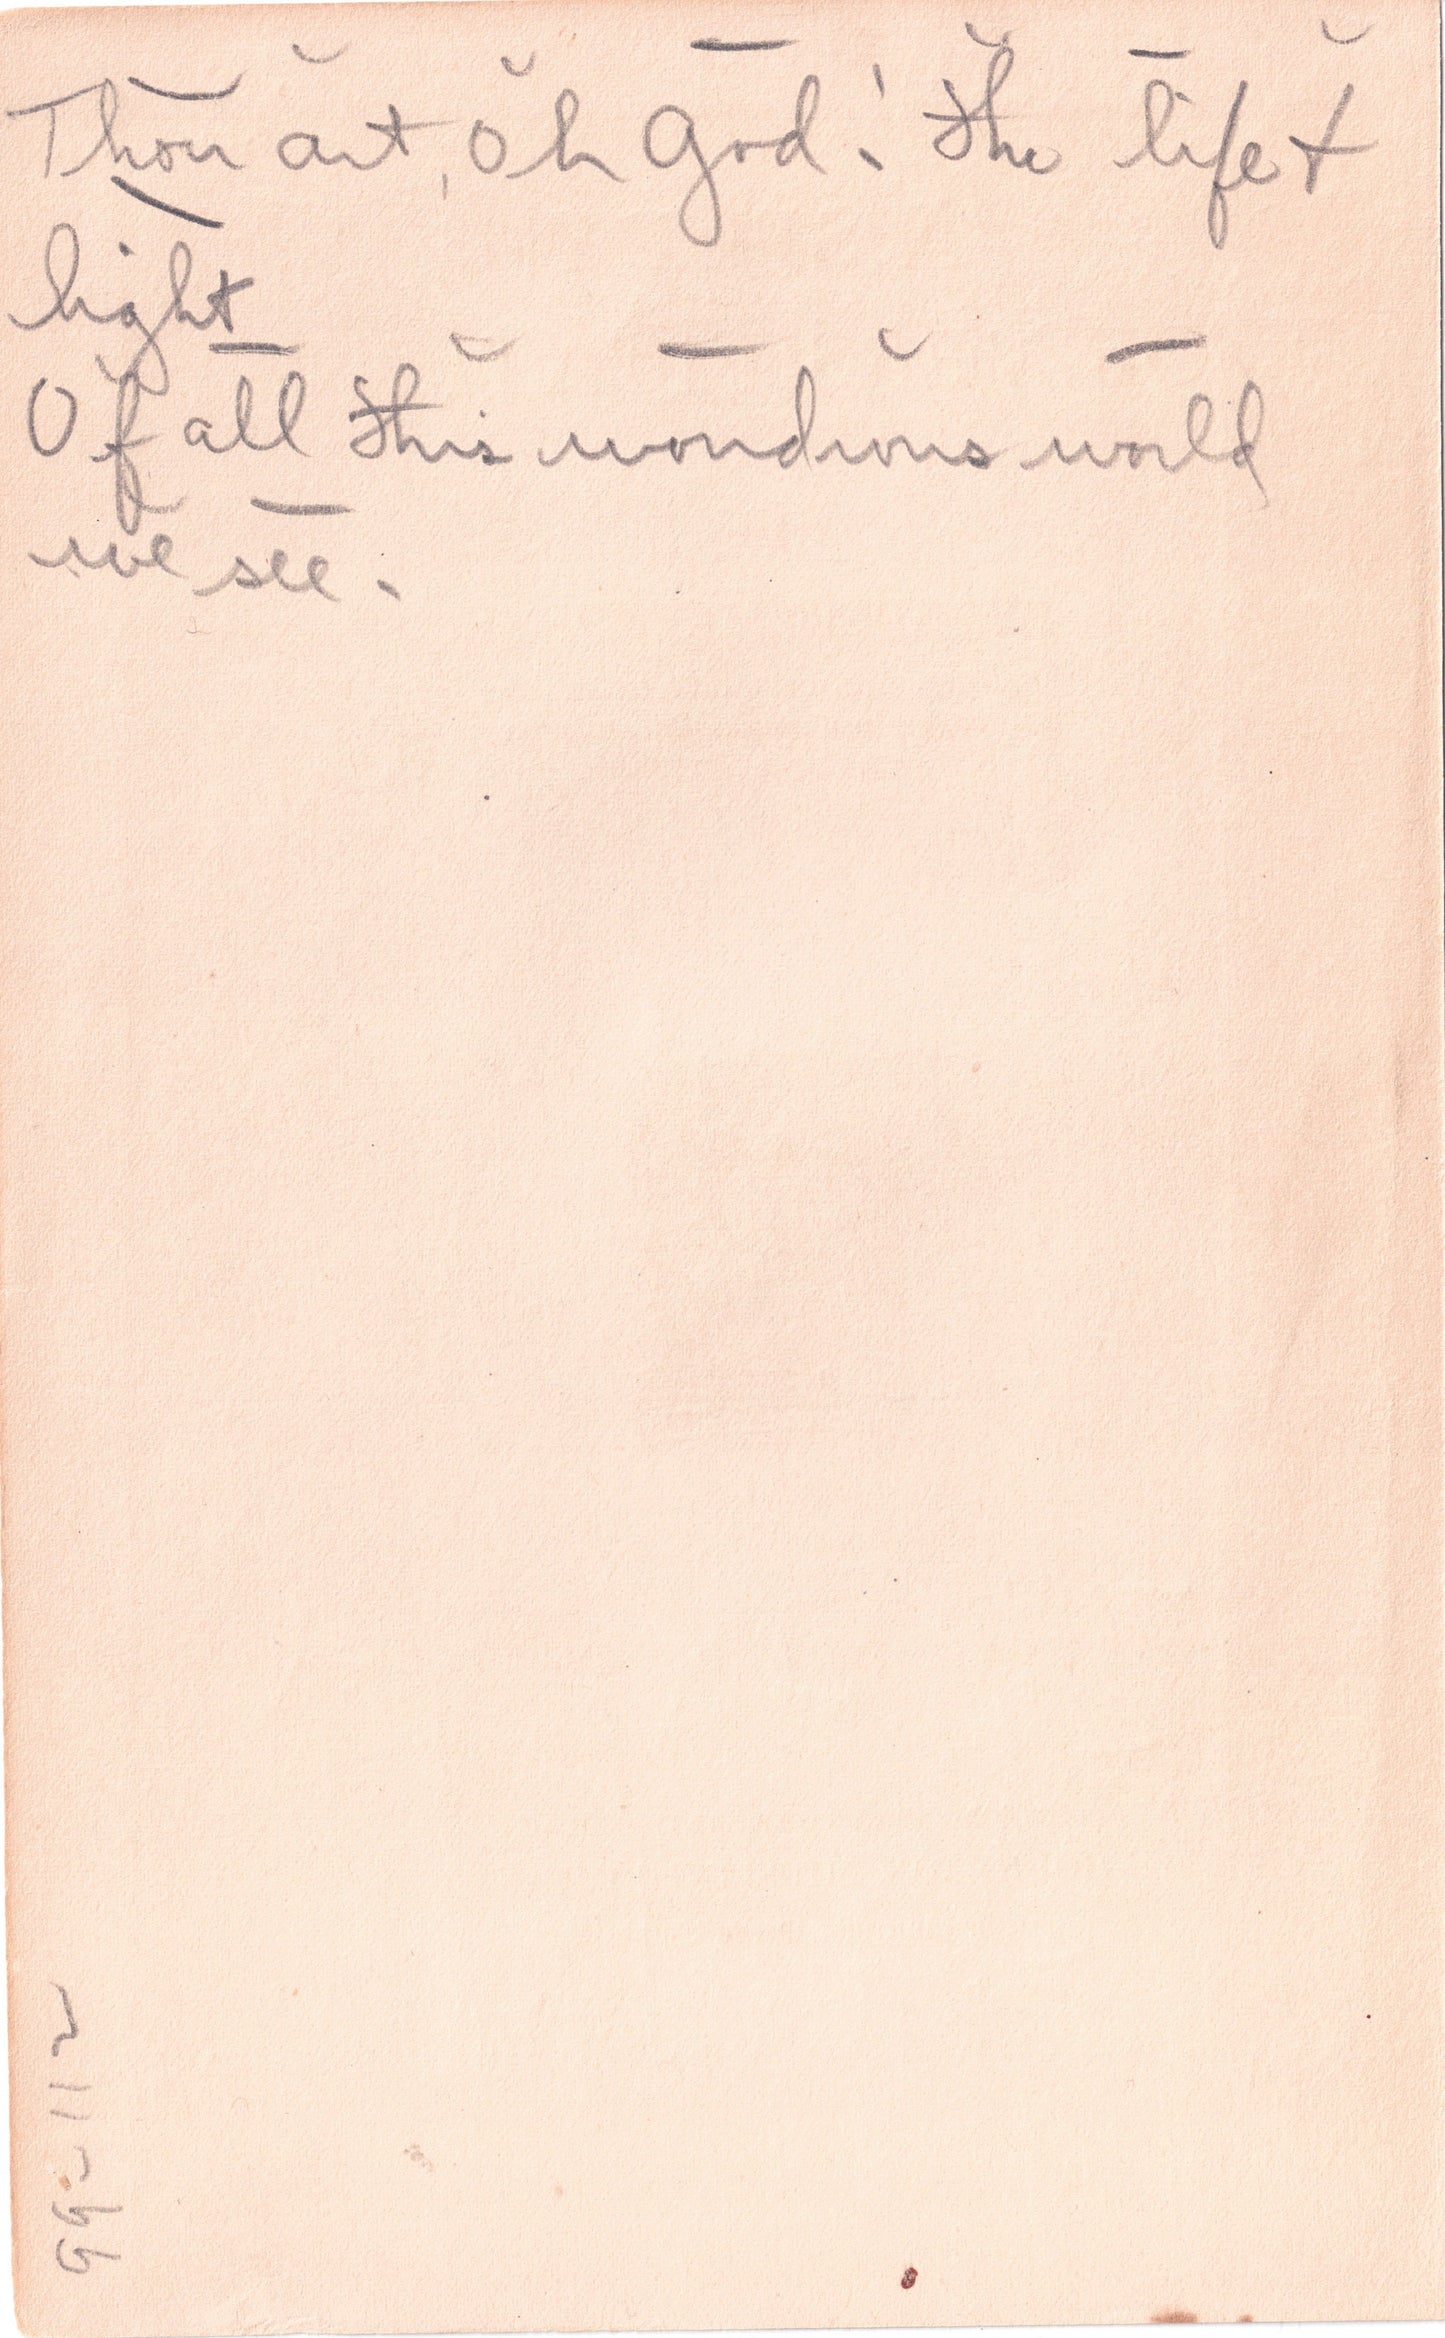 Thou art, Oh God! the life +
light
Of all this wondrous world
we see.